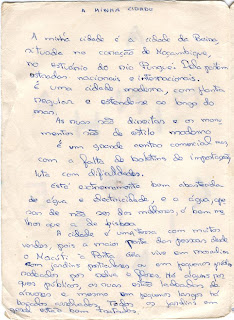 A MINHA CIDADE
A minha cidade é a cidade da Beira,
situada no coração de Moçambique,
no estuário do rio Pungué. Dela partem
estradas nacionais e internacionais.
É uma cidade moderna, com planta
regular e estende-se ao longo do
mar.
As ruas são direitas e os monu
mentos são de estilo moderno
É um grande centro comercial mas,
com a falta de boletins de importação,
luta com dificuldades.
Está extremamente bem abastecida
de água e electricidade, e a água, ape
sar de não ser das melhores, é bem me
lhor que a de Lisboa.
A cidade é uma terra com muitos
verdes, pois a maior parte das pessoas desde
o Macúti à Ponta Gêa vive em moradias
com jardins particulares ou em pequenos prédios
rodeados por relva e flores. Há alguns par
ques públicos, as ruas estão ladeadas de
árvores e mesmo em pequenos largos há
zonas verdes. Todos os jardins em
geral estão bem tratados.